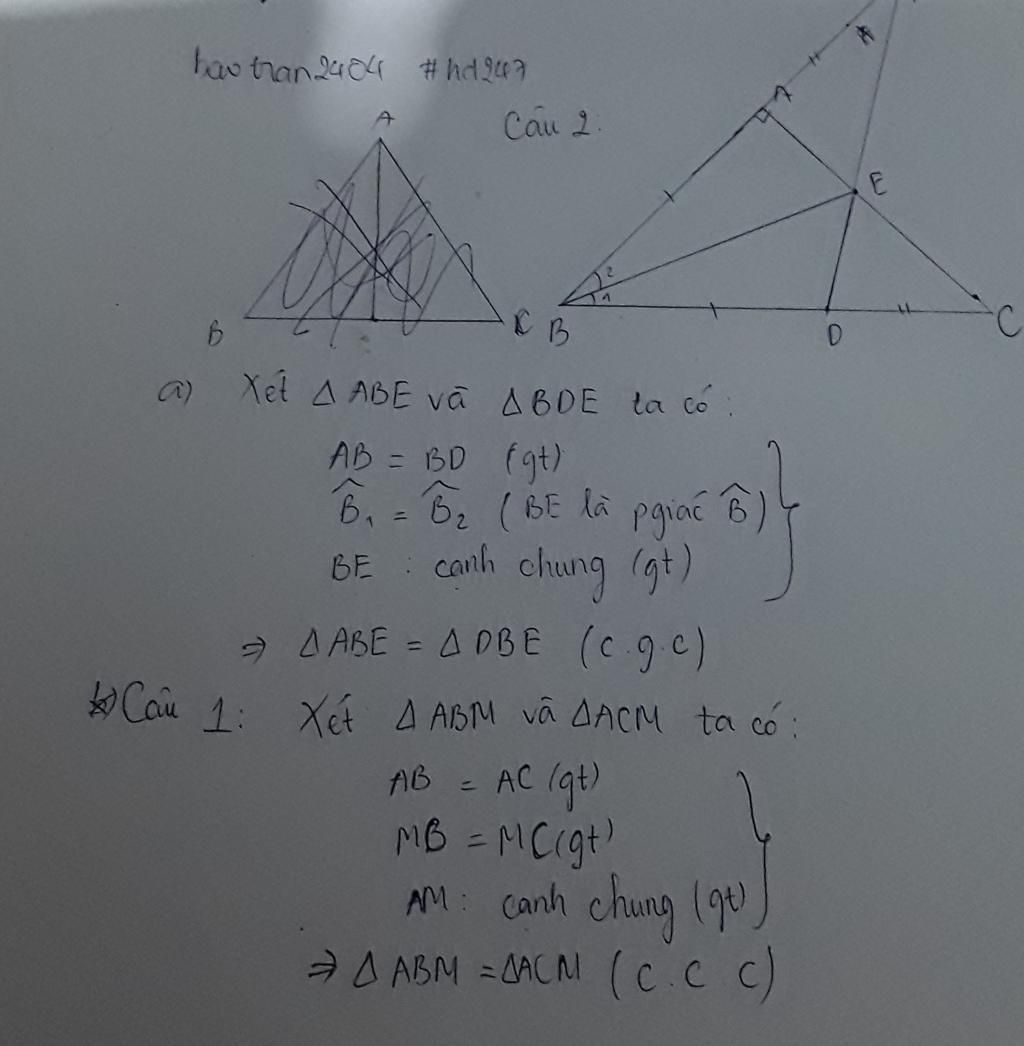 haotran2404 #hd247
Câu 2:
A
B
C
A
E
B
2
1
D
C
a) Xét Δ ABE và Δ BDE ta có:
AB = BD (gt)
B̂₁ = B̂₂ (BE là pgiác B̂)
BE : cạnh chung (gt)
⇒ Δ ABE = Δ DBE (c.g.c)
Câu 1: Xét Δ ABM và ΔACM ta có:
AB = AC (gt)
MB = MC (gt)
AM: cạnh chung (gt)
⇒ Δ ABM = ΔACM (c.c c)